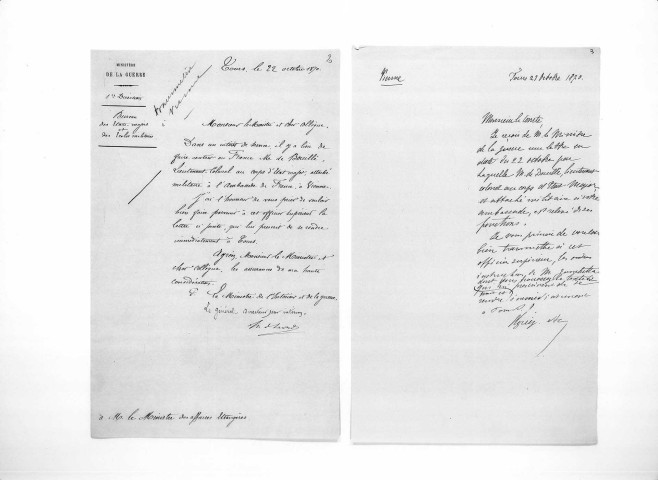 2
MINISTÈRE
DE LA GUERRE
Bureau
des États-majors
et
des Écoles militaires
transmettre
à Vienne
Tours, le 22 octobre 1870.
Monsieur le Ministre et cher Collègue,
Dans un intérêt de service, il y a lieu de
faire rentrer en France Mr de Bouillé
Lieutenant Colonel au corps d'État major, attaché
militaire à l'ambassade de France, à Vienne.
J'ai l'honneur de vous prier de vouloir
bien faire parvenir à cet officier supérieur la
lettre ci-jointe, qui lui prescrit de se rendre
immédiatement à Tours.
Agréez, Monsieur le Ministre et
cher Collègue, les assurances de ma haute
considération.
Le Ministre de l'Intérieur et de la guerre
Le général
à Mr le Ministre des affaires étrangères
3
Vienne
Tours 23 Octobre 1870.
Monsieur le Comte
Je reçois de M. le Ministre
de la guerre une lettre en
date du 22 octobre par
laquelle M. de Bouillé, lieutenant
colonel au corps d'Etat Major
et attaché militaire à votre
ambassade, est relevé de ses
fonctions.
Je vous prie de vouloir
bien transmettre à cet
officier supérieur, les ordres
de M. Gambetta
à Tours
Agréez etc